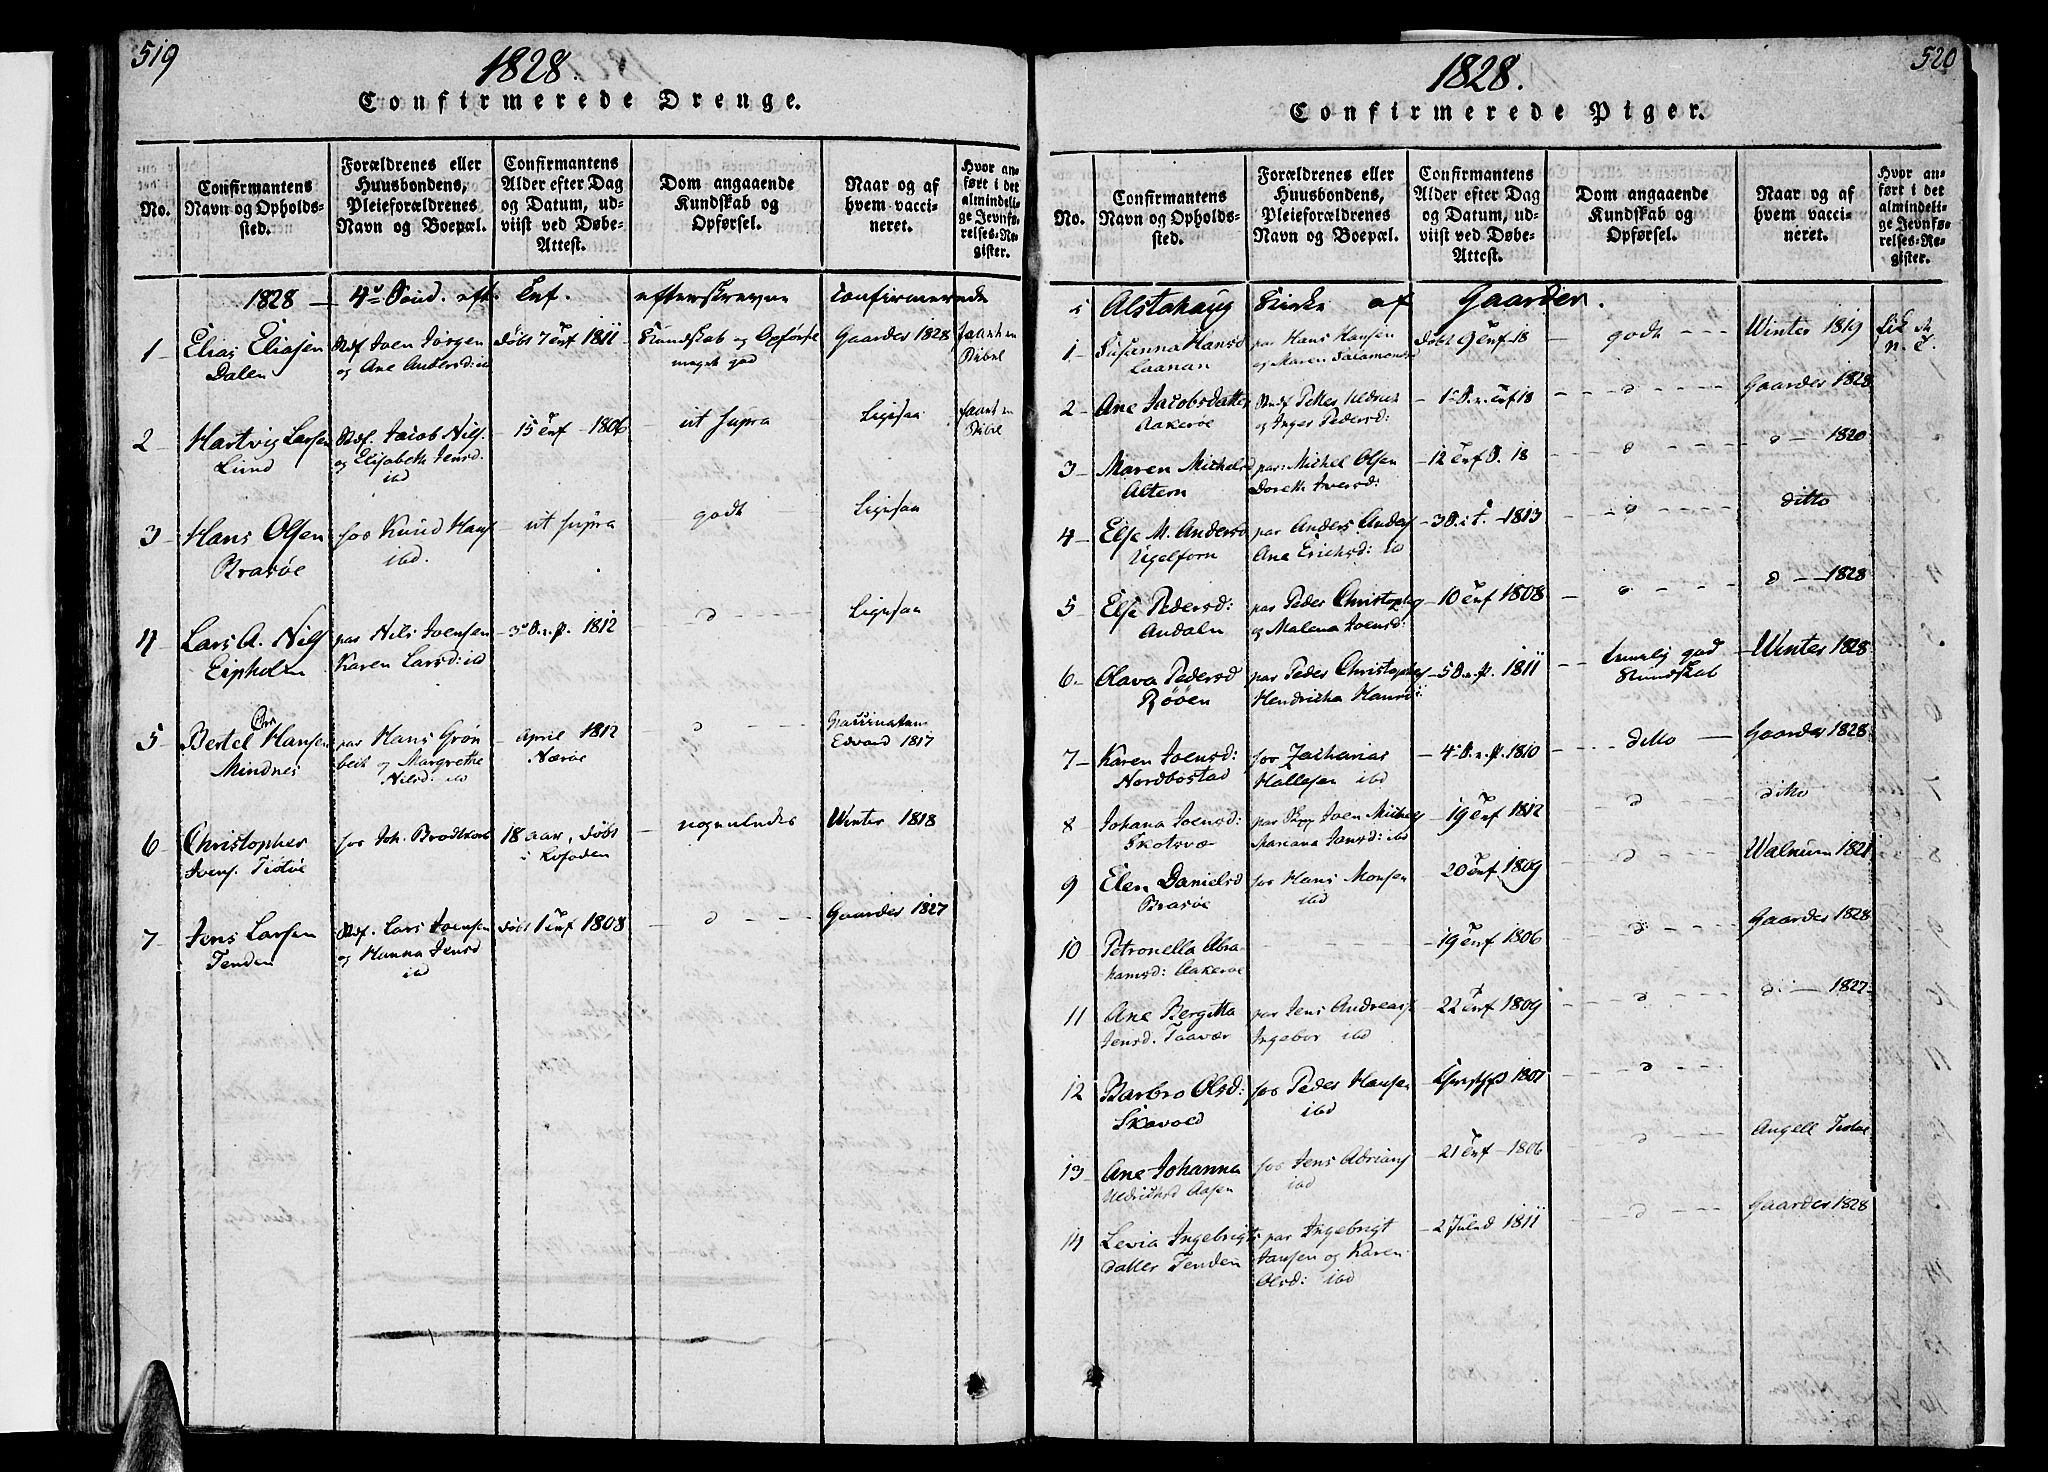 519
1828.
Confirmerede Drenge.
No.
Confirmantens
Navn og Opholds-
sted.
Forældrenes eller
Huusbondens,
Pleieforældrenes
Navn og Boepæl.
Confirmantens
Alder efter Dag
og Datum, ud-
viist ved Døbe-
Attest.
Dom angaaende
Kundskab og
Opførsel.
Naar og af
hvem vacci-
neret.
Hvor an-
ført i det
almindeli-
ge Jevnfø-
relses-Re-
gister.
1828 — 4de Sønd. eft. Trf. efterskrevne Confirmerede
1 Elias Eliasen
Dalen
Joen Jørgen
og Ane Andersd: ibd
Døbt 7 Trf 1811
Kundskab og Opførsel
meget god
Gaarder 1828
2 Hartvig Larsen
Lund
Jacob Nils.
og Elisabeth Jensd.
ibd
15 Trf - 1806
ut supra
Ligesaa
3 Hans Olsen
Brasøe
for Knud Hans
ibd.
ut supra
godt
Ligesaa
4 Lars A. Nils
Eipholm
par Nils Joensen
Karen Larsd: ibd
3 S. e. P. 1812
d
Ligesaa
5 Bertel Chr Hansen
Mindnes
par Hans Grøn
beck og Margrethe
Nilsd: ibd
April 1812
Nærøe
d
Edvard 1817
6 Christopher
Ivers. Tiøtøe
for Joh. Brodtkorb
18 aar, døbt
i Lofoden
nogenledes
Winter 1818
7 Jens Larsen
Tenden
Lars Joensen
og Hanna Jensd
ibd
døbt 1 Trf 1808
d
Gaarder 1827
520
1828.
Confirmerede Piger.
No.
Confirmantens
Navn og Opholds-
sted.
Forældrenes eller
Huusbondens,
Pleieforældrenes
Navn og Boepæl.
Confirmantens
Alder efter Dag
og Datum, ud-
viist ved Døbe-
Attest.
Dom angaaende
Kundskab og
Opførsel.
Naar og af
hvem vacci-
neret.
Hvor an-
ført i det
almindeli-
ge Jevnfø-
relses-Re-
gister.
i Alstahaug Kirke af Gaarder.
1 Susanna Hansd
Laanan
par Hans Hansen
og Maren Salamonsd
Døbt 9 Trf 18
godt
Winter 1819
2 Ane Jacobsdatter
Aakerøe
Petter
og Inger Pedersd:
d
Gaarder 1828
3 Maren Michelsd
Altern
par: Michel Olsen
Doreth Iversd:
12 Trf 18
d
d - 1820
4 Else M. Andersd
Ugelforn
par Anders Anders
Ane Erichsd: ib
1813
d
ditto
5 Else Pedersd:
Andaln
par Peder Christophs
og Malena Joensd:
10 Trf 1808
d
d - 1828
6 Olava Pedersd
Røøen
par Peder Christophs
Hendricha Hansd:
5 S. e. P. 1811
temelig god
Kundskab
Winter 1828
7 Karen Joensd:
Nordbostad
for Zacharias
Hallesen ibd
4 S. e. P. 1810
ditto
Gaarder 1828
8 Johana Joensd:
Skotsvæ
par Joen Michels
Mariana Jonsd: ibd
19 Trf 1812
d
ditto
9 Elen Danielsd
Brasøe
for Hans Monsen
ibd
20 Trf 1809
d
Walnum 1821
10 Petronella Abra
hamsd: Aakerøe
19 Trf 1806
d
Gaarder 1828
11 Ane Bergitta
Jensd. Taavær
par Jens Andreas
Ingebor ibd
22 Trf 1809
d
d - 1827
12 Barbro Olsd:
Skavold
for Peder Hansen
ibd
1807
d
13 Ane Johanna
Aasen
for Jens Adrians
ibd
21 Trf - 1806
d
Angell Tiøtøe
14 Levia Ingebrigts
datter Tenden
par Ingebrigt
Jansen og Karen
Olsd: ibd
2 Juled 1811
d
Gaarder 1828